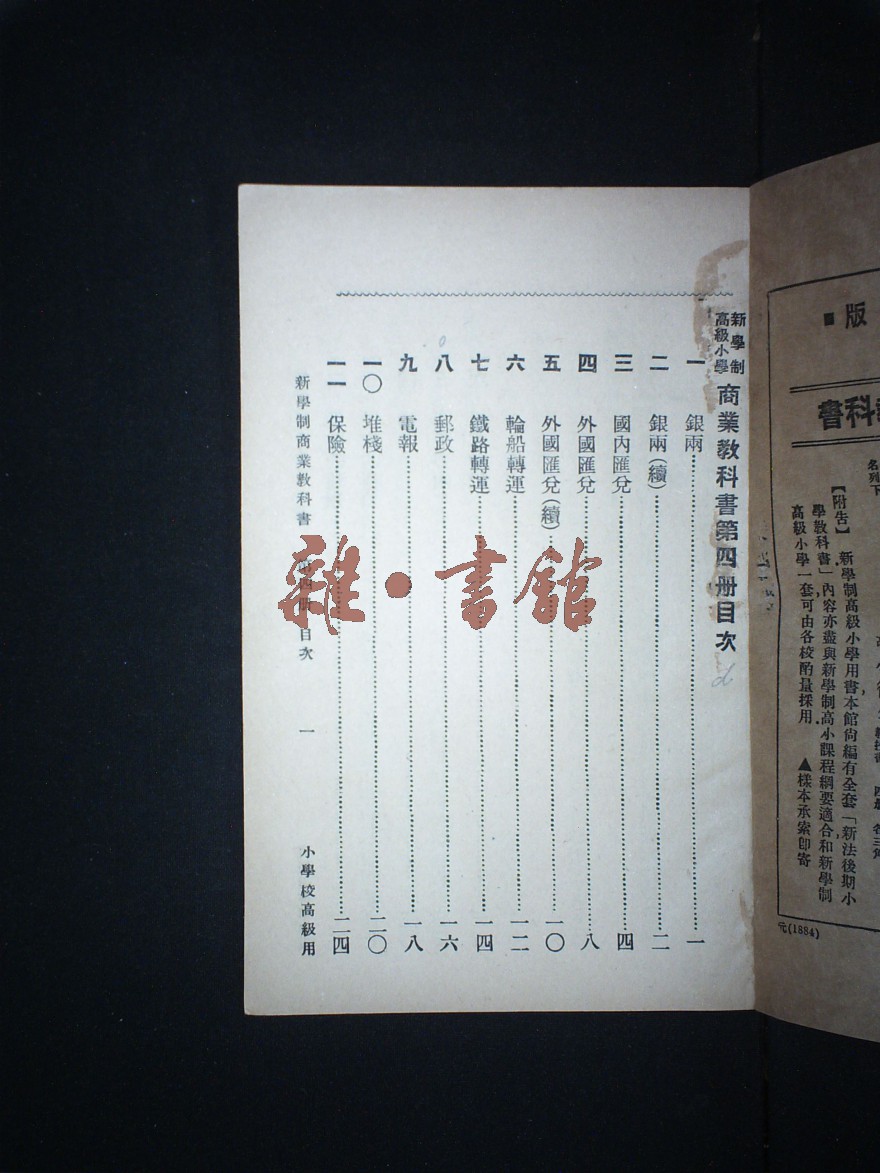 新學制
高級小學
商業教科書第四册目次
一 銀兩 一
二 銀兩(續) 二
三 國內匯兌 四
四 外國匯兌 八
五 外國匯兌(續) 一〇
六 輪船轉運 一二
七 鐵路轉運 一四
八 郵政 一六
九 電報 一八
一〇 堆棧 二〇
一一 保險 二四
新學制商業教科書 第四册 目次 一 小學校高級用
雜·書館
版
書科
名列下
【附告】 新學制高級小學用書本館尙編有全套「新法後期小
學教科書」內容亦盡與新學制高小課程綱要適合和新學制
高級小學一套可由各校酌量採用 ▲樣本承索卽寄
元(1884)